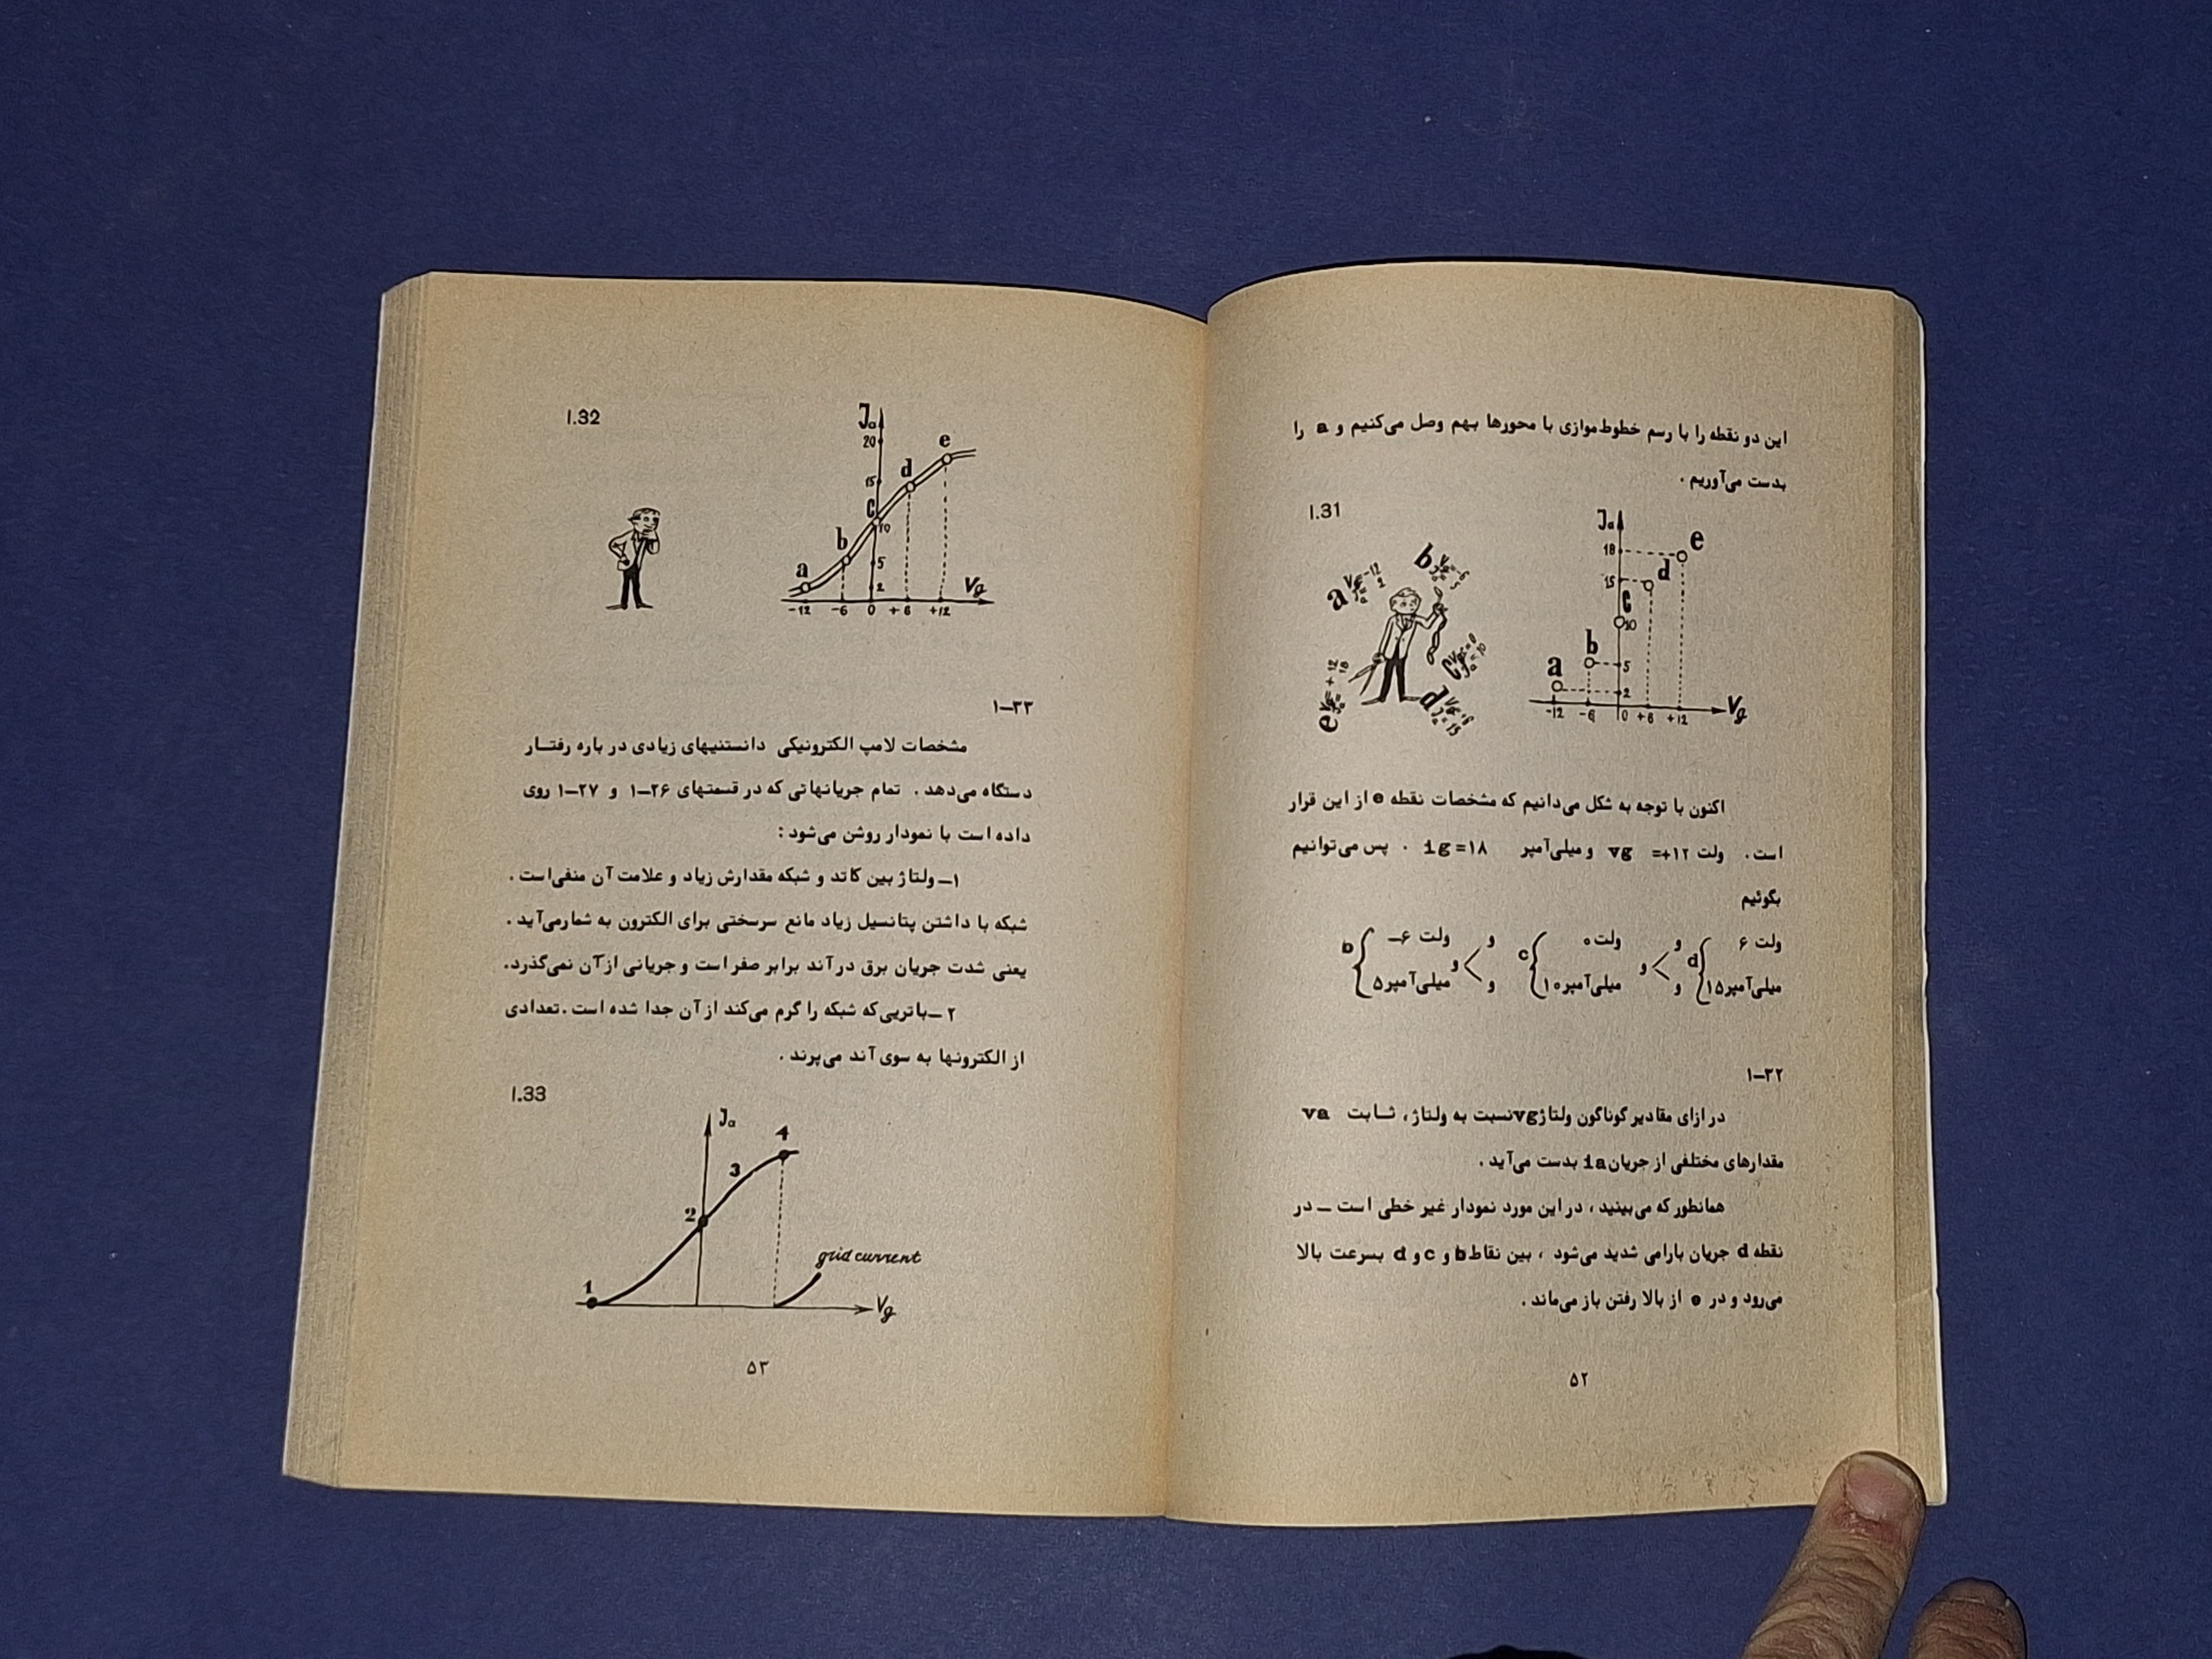 این دو نقطه را با رسم خطوط موازی با محورها بهم وصل می‌کنیم و a را
بدست می‌آوریم .
1.31
Ja
18
15
10
5
2
-12 -6 0 +6 +12
Vg
a b c d e
اکنون با توجه به شکل می‌دانیم که مشخصات نقطه e از این قرار
است . ولت ۱۲+= vg و میلی‌آمپر ۱۸=ig . پس می‌توانیم
بگوئیم
ولت ۶ و ولت ۰ و ولت ۶–
d و c و b
میلی‌آمپر ۱۵ و میلی‌آمپر ۱۰ و میلی‌آمپر ۵
۱–۳۲
در ازای مقادیر گوناگون ولتاژ vg نسبت به ولتاژ، ثــابت va
مقدارهای مختلفی از جریان ia بدست می‌آید .
همانطور که می‌بینید ، در این مورد نمودار غیر خطی است – در
نقطه d جریان بارامی شدید می‌شود ، بین نقاط b و c و d بسرعت بالا
می‌رود و در e از بالا رفتن باز می‌ماند .
۵۲
1.32
Ja
20
15
10
5
2
-12 -6 0 +6 +12
Vg
a b c d e
۱–۳۳
مشخصات لامپ الکترونیکی دانستنیهای زیادی در باره رفتــار
دستگاه می‌دهد . تمام جریانهائی که در قسمتهای ۲۶–۱ و ۲۷–۱ روی
داده است با نمودار روشن می‌شود :
۱– ولتاژ بین کاتد و شبکه مقدارش زیاد و علامت آن منفی‌است .
شبکه با داشتن پتانسیل زیاد مانع سرسختی برای الکترون به شمارمی‌آید .
یعنی شدت جریان برق در آند برابر صفر است و جریانی از آن نمی‌گذرد.
۲– باتریی‌که شبکه را گرم می‌کند از آن جدا شده است . تعدادی
از الکترونها به سوی آند می‌پرند .
1.33
Ja
4
3
2
1
grid current
Vg
۵۳